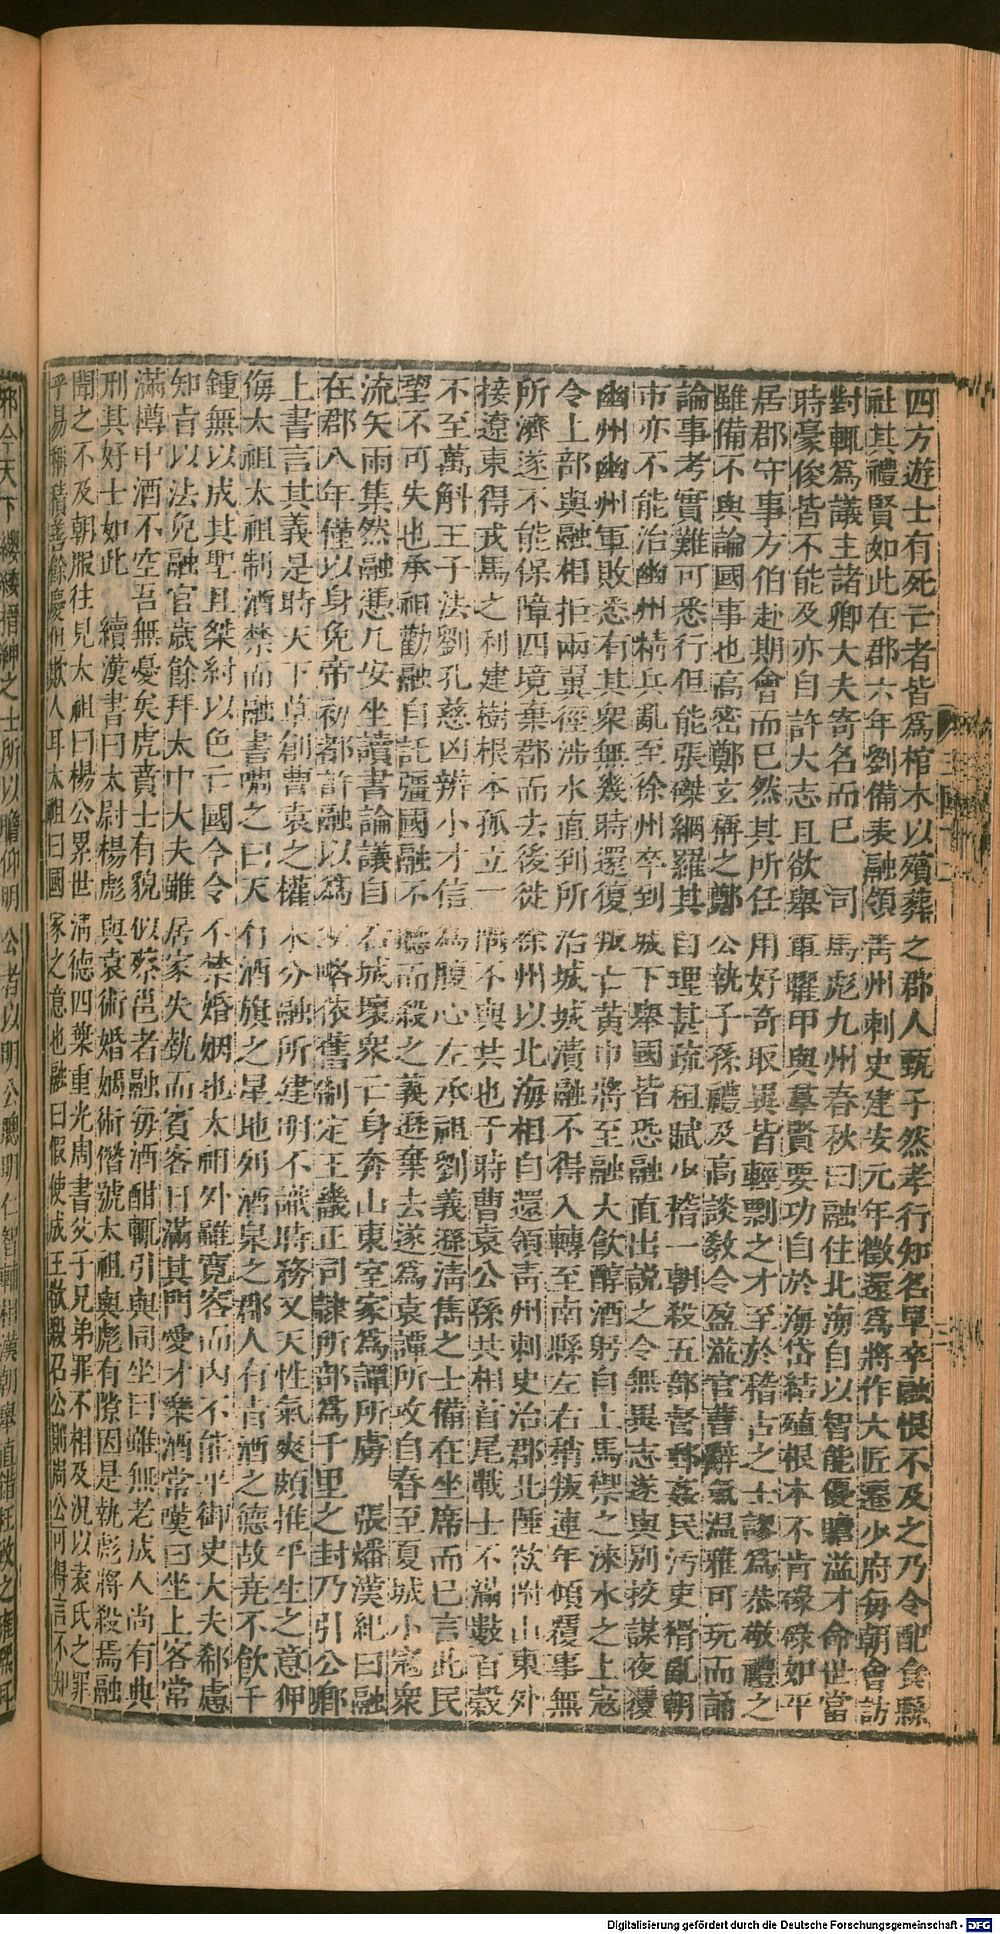 四方遊士有死亡者皆爲棺木以殯葬之郡人甄子然孝行知名早卒融恨不及之乃令配食縣
社其禮賢如此在郡六年劉備表融領靑州刺史建安元年徵還爲將作大匠遷少府毎朝會訪
對輒爲議主諸卿大夫寄名而已　司馬彪九州春秋曰融在北海自以智能優贍溢才命世當
時豪俊皆不能及亦自許大志且欲舉軍曜甲與羣賢要功自於海岱結殖根本不肯碌碌如平
居郡守事方伯赴期會而已然其所任用好奇取異皆輕剽之才至於稽古之士謬爲恭敬禮之
雖備不與論國事也高密鄭玄稱之鄭公執子孫禮及高談敎令盈溢官曹辭氣温雅可玩而誦
論事考實難可悉行但能張磔網羅其自理甚疏租賦少稽一朝殺五部督郵姦民汚吏猾亂朝
市亦不能治幽州精兵亂至徐州卒到城下舉國皆恐融直出説之令無異志遂與別挍謀夜覆
幽州幽州軍敗悉有其衆無幾時還復叛亡黃巾將至融大飮醇酒躬自上馬禦之淶水之上寇
令上部與融相拒兩翼徑涉水直到所治城城潰融不得入轉至南縣左右稍叛連年傾覆事無
所濟遂不能保障四境棄郡而去後徙徐州以北海相自還領靑州刺史治郡北陲欲附山東外
接遼東得戎馬之利建樹根本孤立一隅不與共也于時曹袁公孫共相首尾戰士不滿數百穀
不至萬斛王子法劉孔慈凶辨小才信爲腹心左承祖劉義遜淸雋之士備在坐席而已言此民
望不可失也承祖勸融自託彊國融不聽而殺之義遜棄去遂爲袁譚所攻自春至夏城小寇衆
流矢雨集然融憑几安坐讀書論議自若城壞衆亡身奔山東室家爲譚所虜　張璠漢紀曰融
在郡八年僅以身免帝初都許融以爲宜略依舊制定王畿正司隷所部爲千里之封乃引公卿
上書言其義是時天下草創曹袁之權未分融所建明不識時務又天性氣爽頗推平生之意狎
侮太祖太祖制酒禁而融書嘲之曰天有酒旗之星地列酒泉之郡人有旨酒之德故堯不飮千
鍾無以成其聖且桀紂以色亡國今令不禁婚姻也太祖外雖寛容而內不能平御史大夫郗慮
知旨以法免融官歲餘拜太中大夫雖居家失埶而賓客日滿其門愛才樂酒常嘆曰坐上客常
滿樽中酒不空吾無憂矣虎賁士有貌似蔡邕者融毎酒酣輒引與同坐曰雖無老成人尚有典
刑其好士如此　續漢書曰太尉楊彪與袁術婚姻術僭號太祖與彪有隙因是執彪將殺焉融
聞之不及朝服往見太祖曰楊公累世淸德四葉重光周書父子兄弟罪不相及況以袁氏之罪
乎易稱積善餘慶但欺人耳太祖曰國家之意也融曰假使成王欲殺召公則周公可得言不知
邪今天下纓緌搢紳之士所以瞻仰明公者以明公聰明仁智輔相漢朝舉直錯枉致之雍熙耳
Digitalisierung gefördert durch die Deutsche Forschungsgemeinschaft - DFG